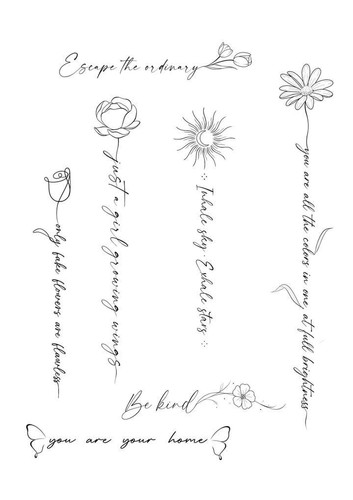 Escape the ordinary
only fake flowers are flawless
just a girl growing wings
Inhale sky · Exhale stars
you are all the colors in one, at full brightness
Be kind
you are your home